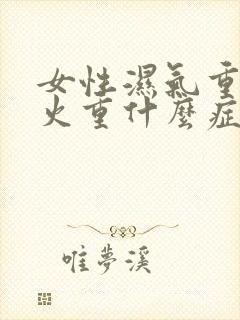 女性濕氣重
火重什麼症
唯夢溪